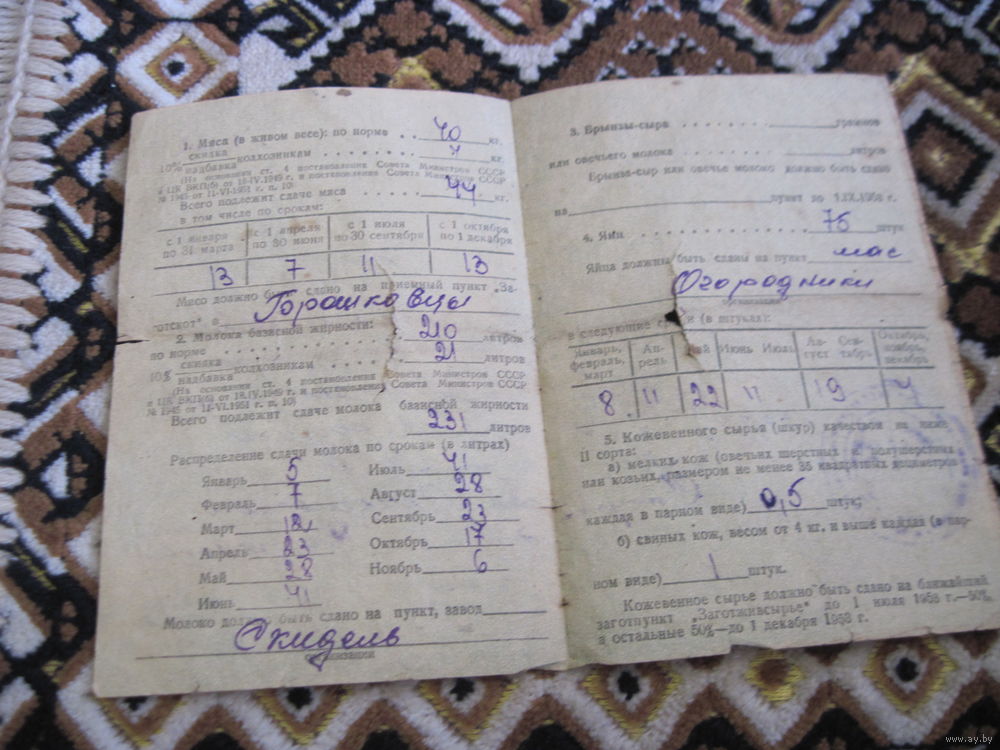 1. Мяса (в живом весе): по норме . . 40 кг.
10% скидка
надбавка колхозникам . . . . . . . . 7 кг.
(На основании ст. 4 постановления Совета Министров СССР
и ЦК ВКП(б) от 18.IV.1949 г. и постановления Совета Министров СССР
№ 1945 от 11-VI.1951 г. п. 10)
Всего подлежит сдаче мяса . . . . . 44 кг.
в том числе по срокам:
с 1 января по 31 марта
с 1 апреля по 30 июня
с 1 июля по 30 сентября
с 1 октября по 1 декабря
13 7 11 13
Мясо должно быть сдано на приемный пункт „За-
отскот" в Горошковцы
2. Молока базисной жирности:
по норме . . . . . . . . 210 литров
10% скидка
надбавка колхозникам . . . . . . 21 литров
(На основании ст. 4 постановления Совета Министров СССР
и ЦК ВКП(б) от 18.IV.1949 г. и постановления Совета Министров СССР
№ 1945 от 11-VI.1951 г. п. 10)
Всего подлежит сдаче молока базисной жирности
231 литров
Распределение сдачи молока по срокам (в литрах)
Январь 5
Февраль 7
Март
Апрель 23
Май 28
Июнь 41
Июль 41
Август 28
Сентябрь 23
Октябрь 17
Ноябрь 6
Молоко должно быть сдано на пункт, завод
Скидель
3. Брынзы-сыра . . . . . . . граммов
или овечьего молока . . . . . . литров
Брынза-сыр или овечье молоко должно быть сдано
на пункт до 1.IX.1953 г.
4. Яиц . . . . . . . . 75 штук
Яйца должны быть сданы на пункт мас
Огородники
в следующие сроки (в штуках):
Январь, февраль, март
Ап- рель
Май
Июнь
Июль
Ав- густ
Сен- тябрь
Октябрь, ноябрь, декабрь
8 11 22 11 19 4
5. Кожевенного сырья (шкур) качеством не ниже
II сорта:
а) мелких кож (овечьих шерстных и полушерстных
или козьих, размером не менее 35 квадратных дециметров
каждая в парном виде) 0,5 штук;
б) свиных кож, весом от 4 кг. и выше каждая (в пар-
ном виде) 1 штук.
Кожевенное сырье должно быть сдано на ближайший
заготпункт „Заготживсырье" до 1 июля 1953 г.—50%,
а остальные 50%—до 1 декабря 1953 г.
www.ay.by